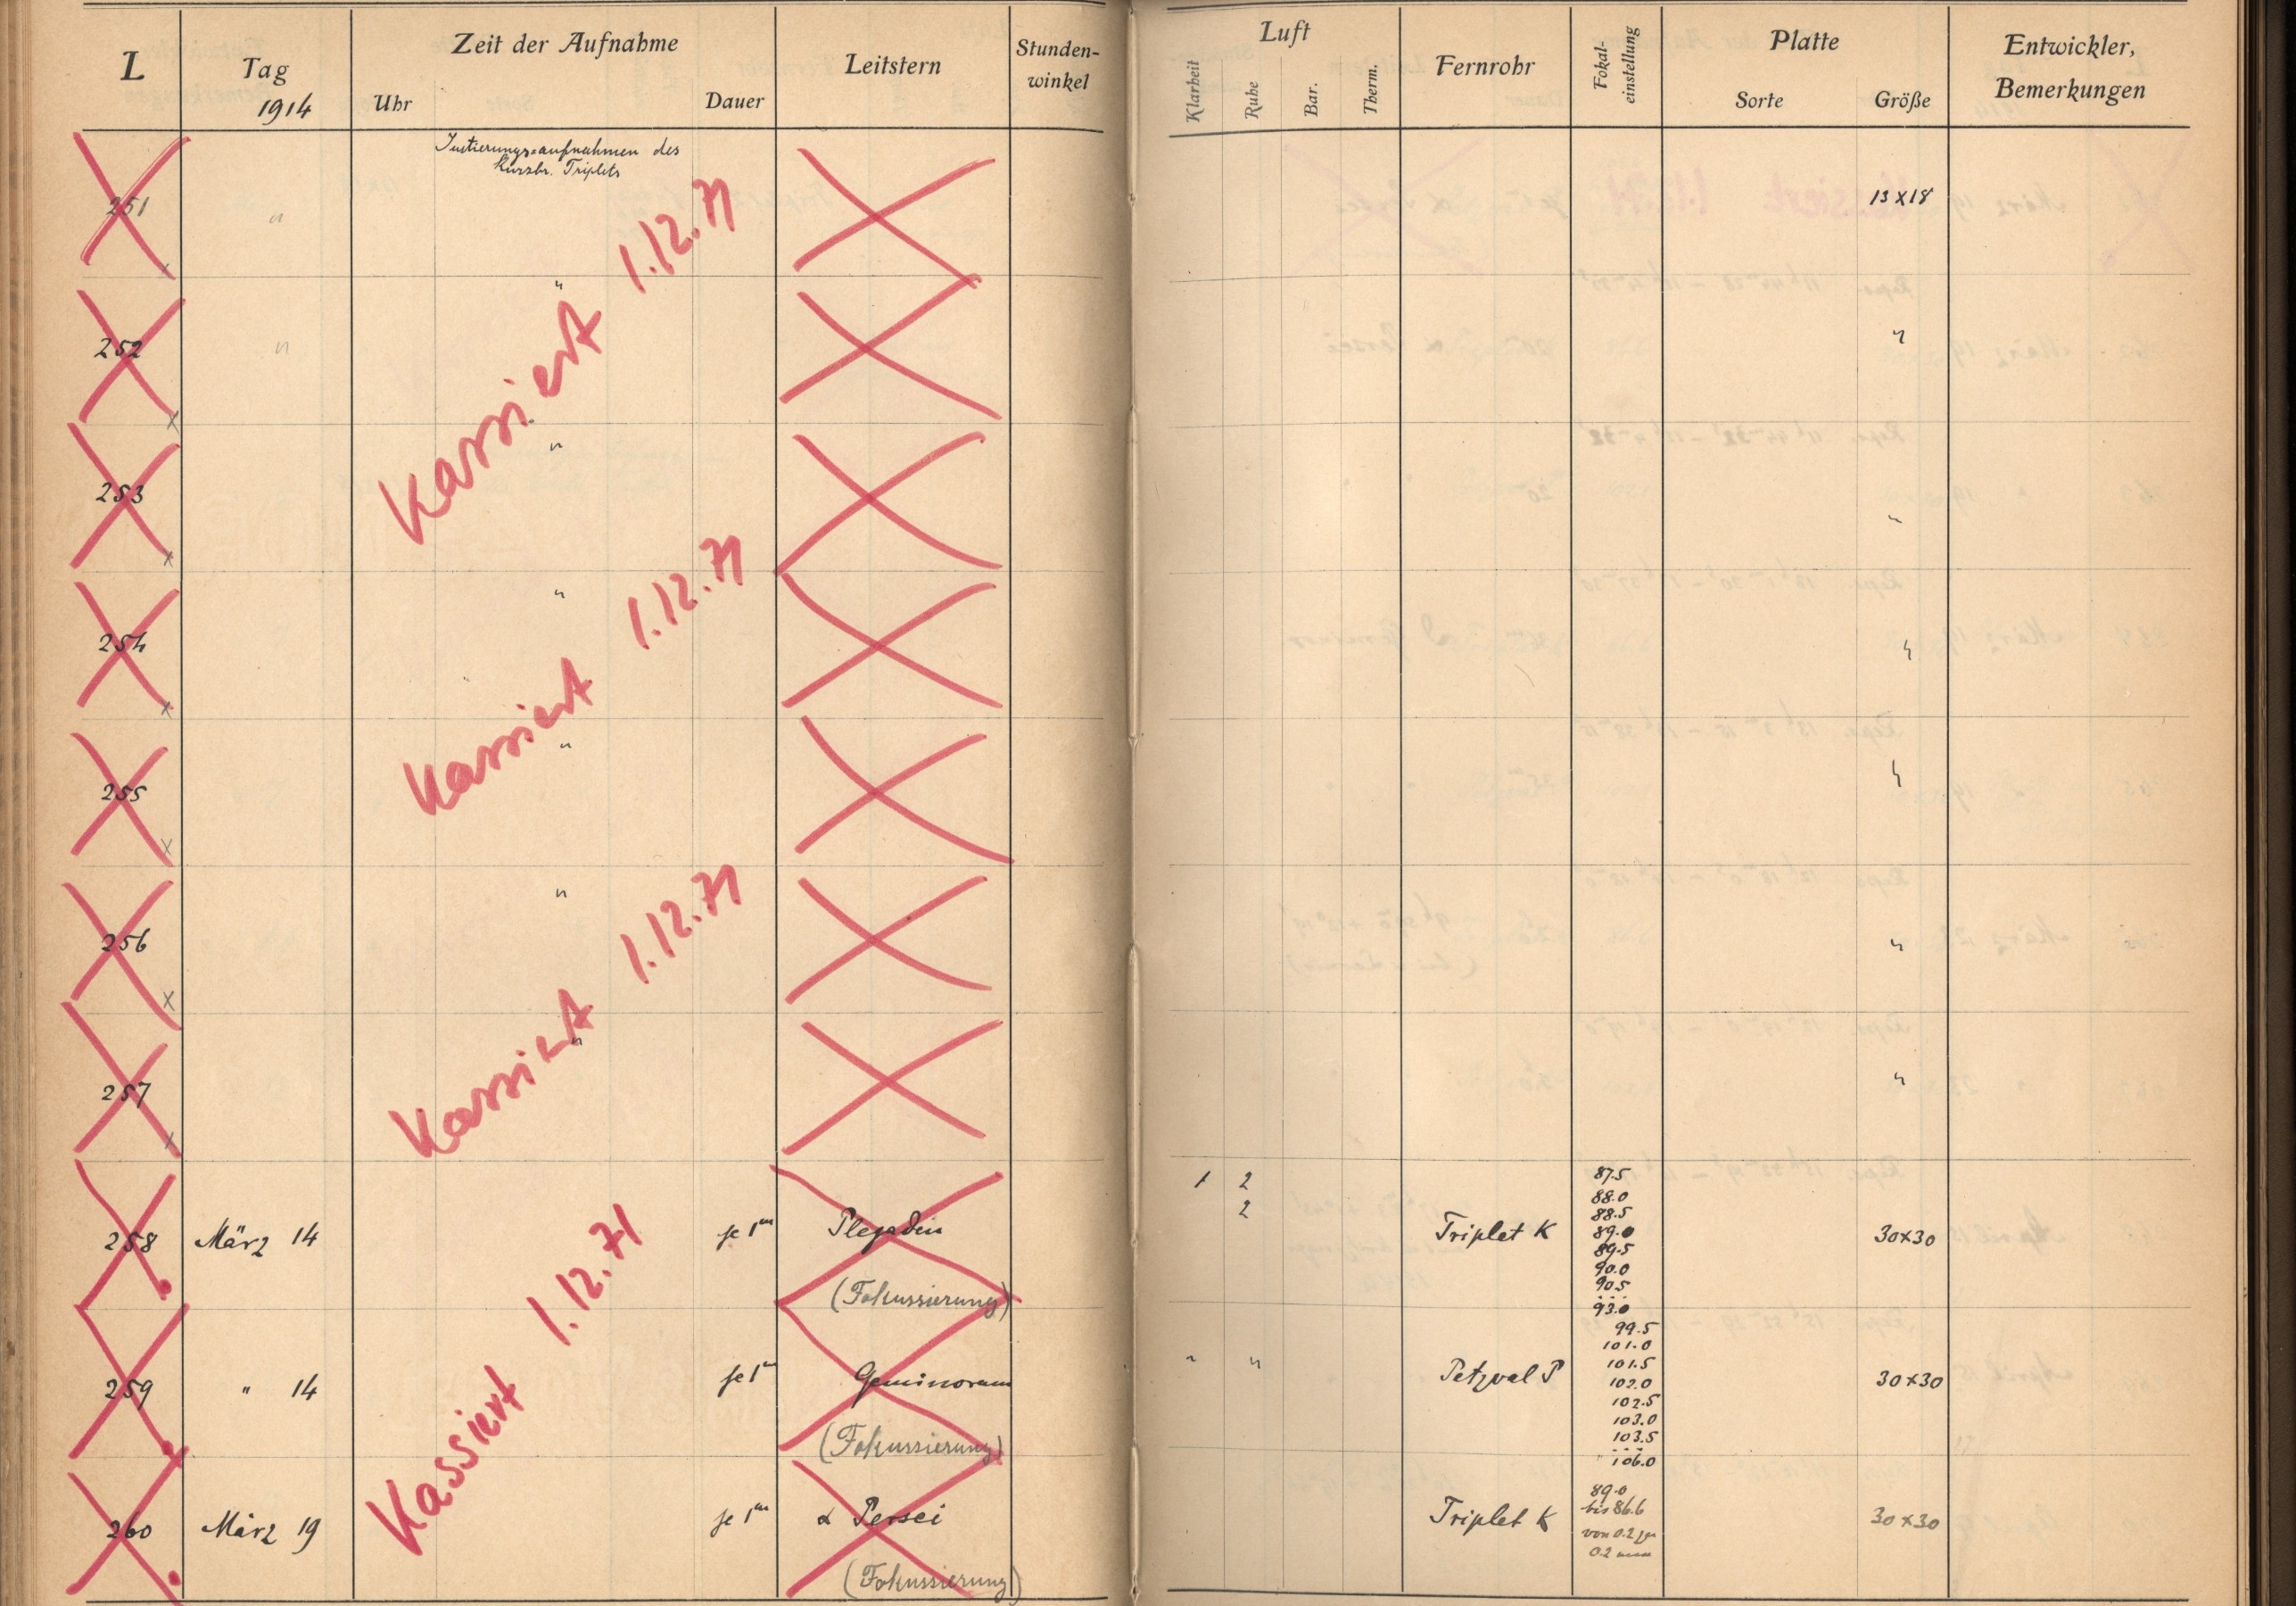 L Tag 1914 Zeit der Aufnahme Uhr Dauer Leitstern Stunden-winkel Luft Klarheit Ruhe Bar. Therm. Fernrohr Fokal-einstellung Platte Sorte Größe Entwickler, Bemerkungen
Justierungsaufnahmen des
Kurzbr. Triplets
251 " 13 x 18
Kassiert 1.12.71
"
252 " "
"
253 "
"
254 "
Kassiert 1.12.71
"
255 "
"
256 "
Kassiert 1.12.71
"
257 "
258 März 14 je 1m Plejaden 1 2
2
Triplet K
87.5
88.0
88.5
89.0
89.5
90.0
90.5
...
93.0
30x30
(Fokussierung)
Kassiert 1.12.71
259 " 14 je 1m Geminorum " " Petzval P
99.5
101.0
101.5
102.0
102.5
103.0
103.5
...
106.0
30x30
(Fokussierung)
260 März 19 je 1m α Persei Triplet K
89.0
bis 86.6
von 0.2 zu
0.2 mm
30x30
(Fokussierung)